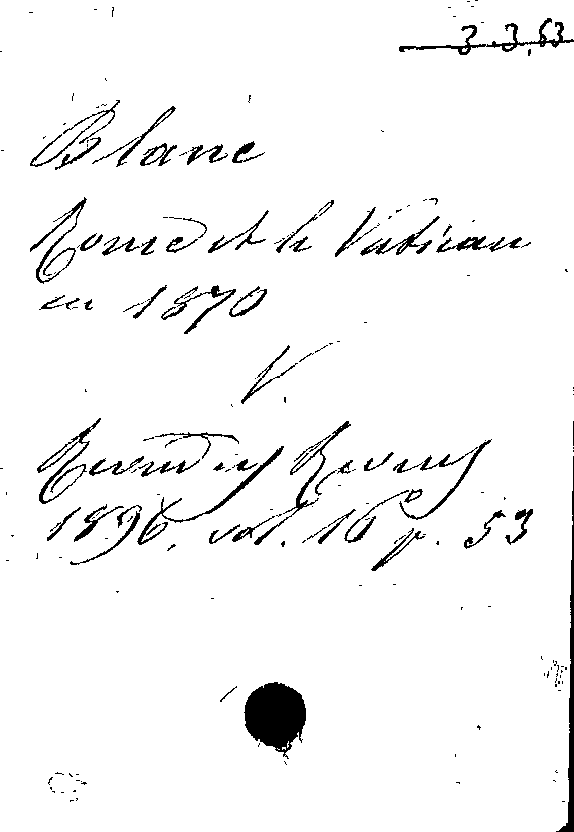 3.3.53
Blanc
Rome et le Vatican
en 1870
V.
Revue des Revues
1896, vol. 16 p. 53